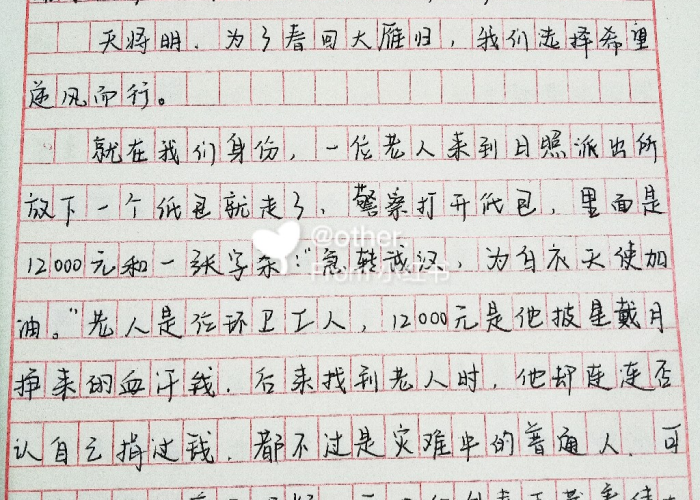 天将明，为了春回大雁归，我们选择希望
逆风而行。
就在我们身份，一位老人来到日照派出所
放下一个纸包就走了，警察打开纸包，里面是
12000元和一张字条："急转武汉，为白衣天使加
油。"老人是位环卫工人，12000元是他披星戴月
挣来的血汗钱，后来找到老人时，他却连连否
认自己捐过钱，都不过是灾难中的普通人，可
@other.
From 小红书